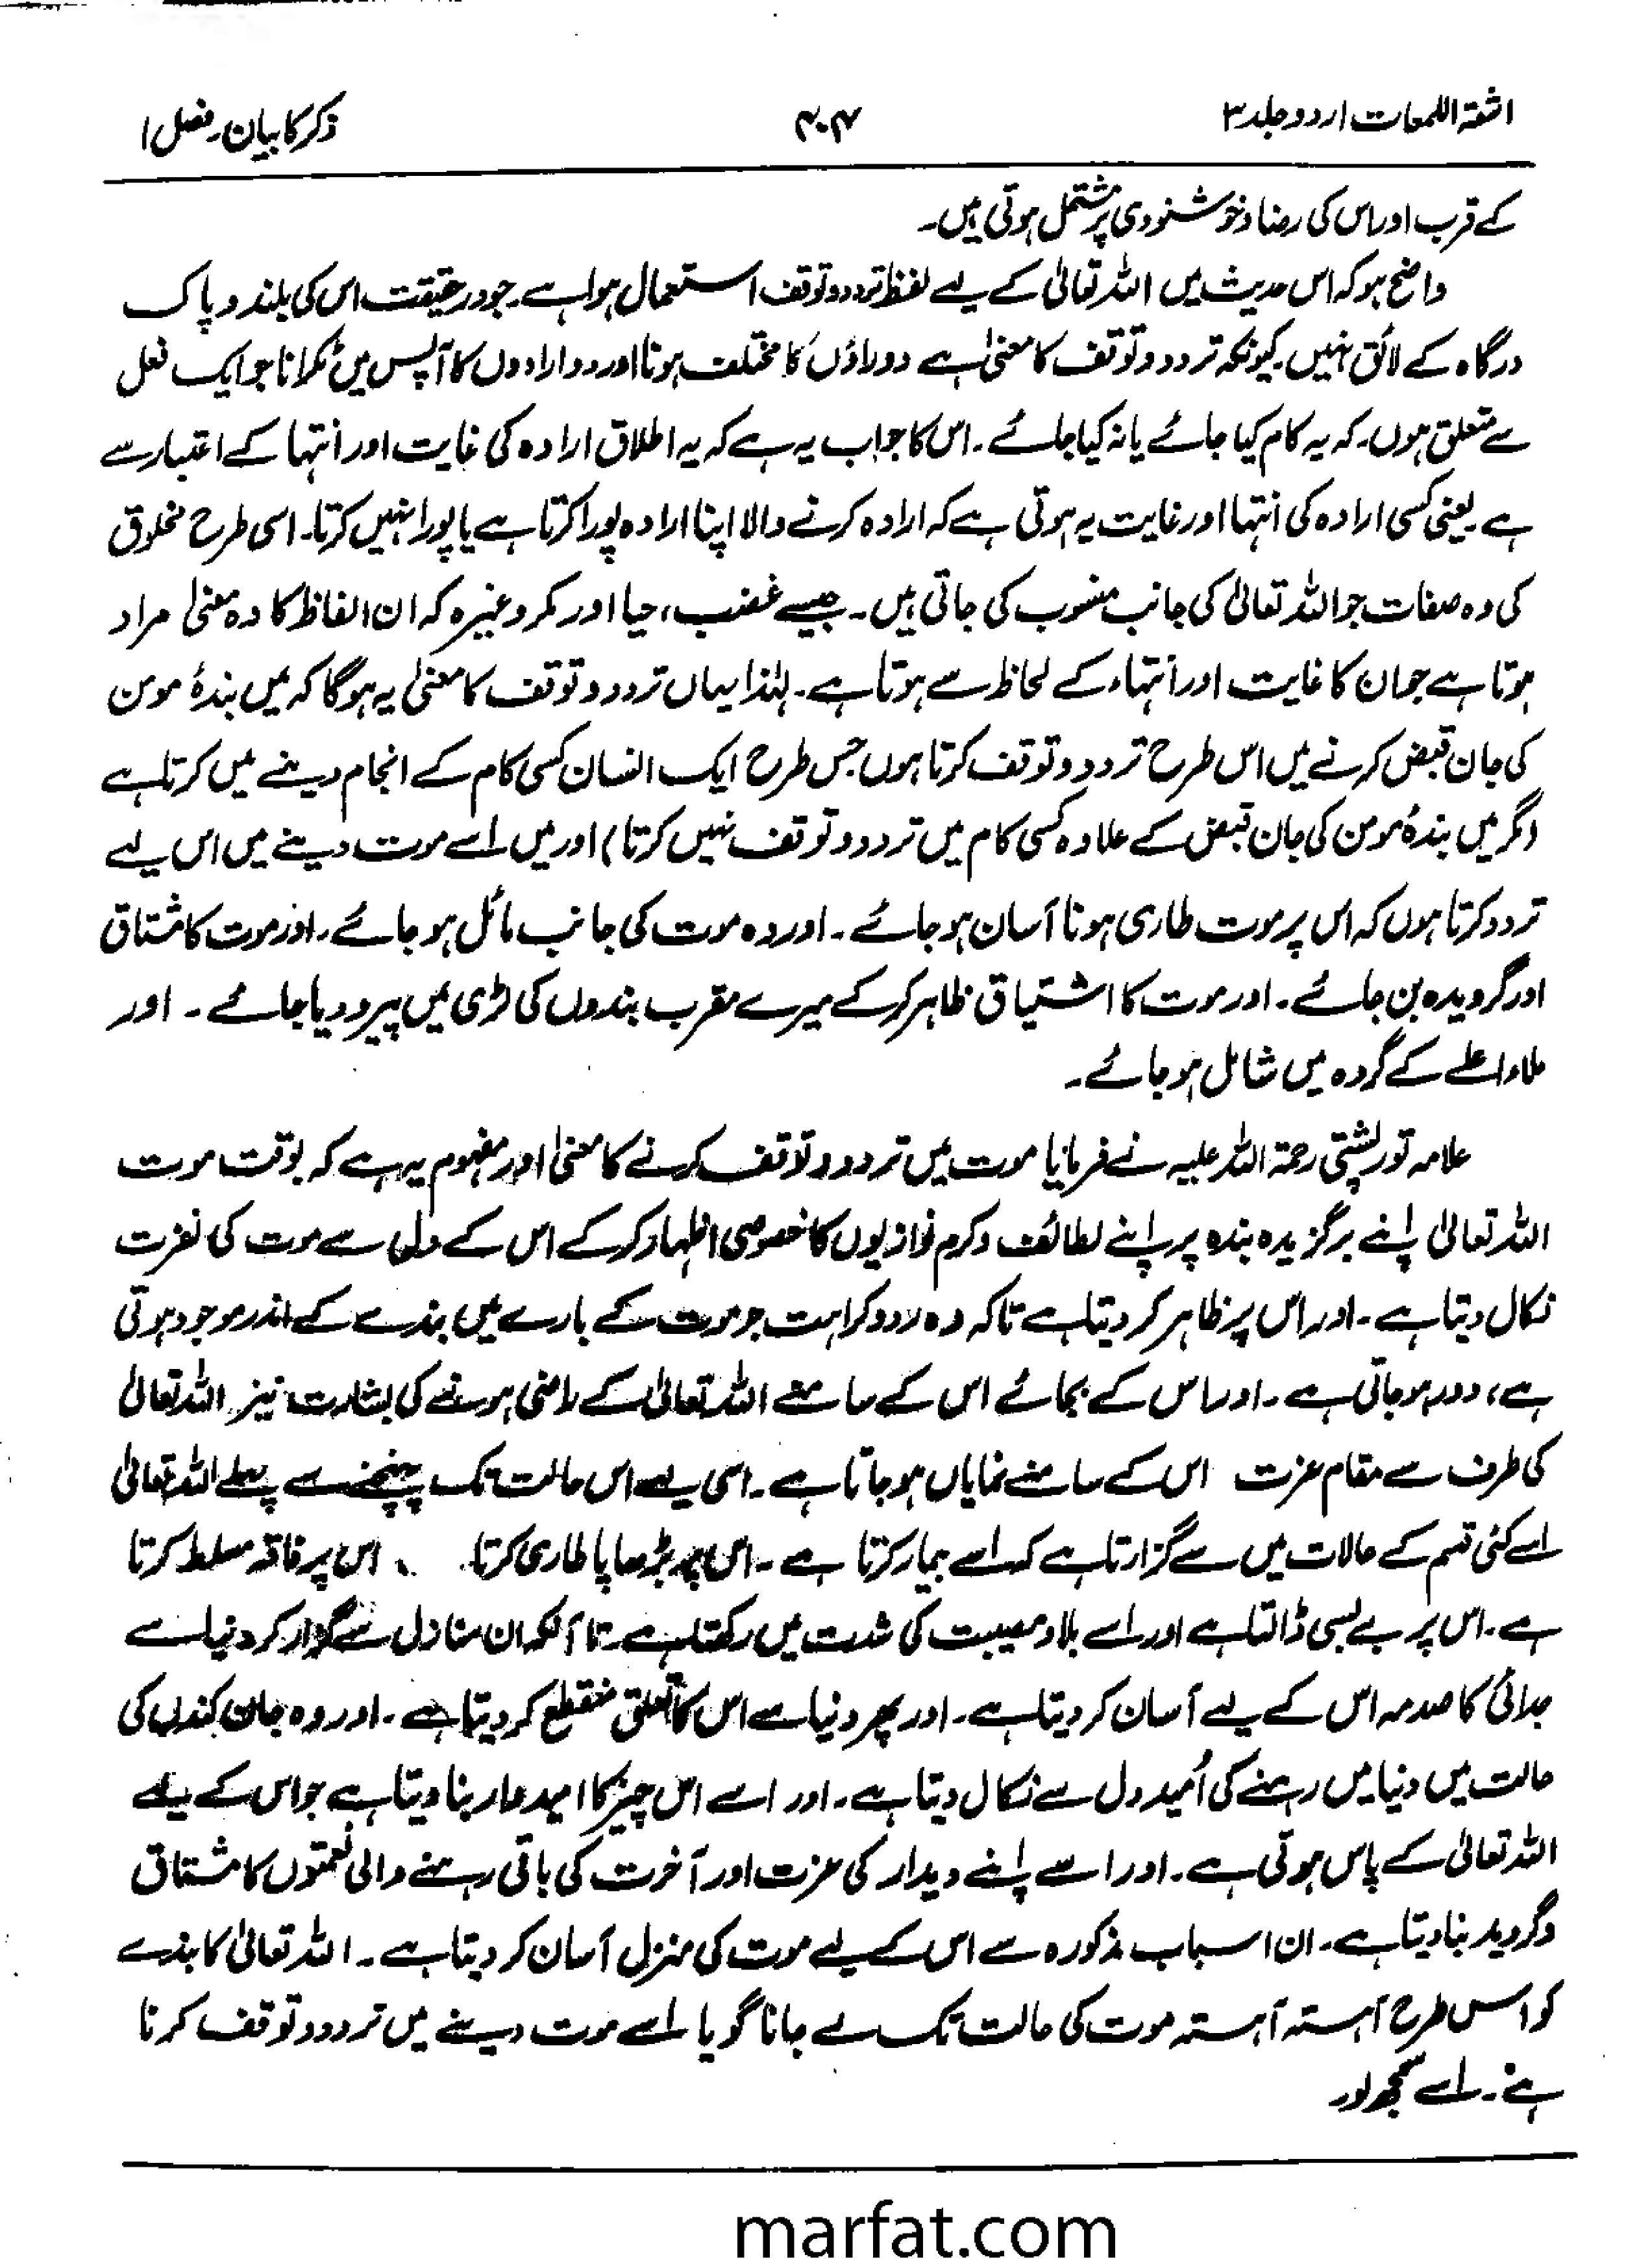 اشعۃ اللمعات اردو جلد ۳
۴۰۴
ذکر کا بیان۔ فصل ۱
کے قرب اور اس کی رضا و خوشنودی پر مشتمل ہوتی ہیں۔
واضح ہو کہ اس حدیث میں اللہ تعالیٰ کے لیے لفظ تردد و توقف استعمال ہوا ہے۔ جو درحقیقت اس کی بلند و پاک
درگاہ کے لائق نہیں۔ کیونکہ تردد و توقف کا معنیٰ ہے دو راؤں کا مختلف ہونا اور دو ارادوں کا آپس میں ٹکرانا جو ایک فعل
سے متعلق ہوں۔ کہ یہ کام کیا جائے یا نہ کیا جائے۔ اس کا جواب یہ ہے کہ یہ اطلاق ارادہ کی غایت اور انتہا کے اعتبار سے
ہے۔ یعنی کسی ارادہ کی انتہا اور غایت یہ ہوتی ہے کہ ارادہ کرنے والا اپنا ارادہ پورا کرتا ہے یا پورا نہیں کرتا۔ اسی طرح مخلوق
کی وہ صفات جو اللہ تعالیٰ کی جانب منسوب کی جاتی ہیں۔ جیسے غضب، حیا اور مکر وغیرہ کہ ان الفاظ کا وہ معنیٰ مراد
ہوتا ہے جو ان کا غایت اور انتہاء کے لحاظ سے ہوتا ہے۔ لہٰذا یہاں تردد و توقف کا معنیٰ یہ ہوگا کہ میں بندۂ مومن
کی جان قبض کرنے میں اس طرح تردد و توقف کرتا ہوں جس طرح ایک انسان کسی کام کے انجام دینے میں کرتا ہے
(مگر میں بندۂ مومن کی جان قبض کے علاوہ کسی کام میں تردد و توقف نہیں کرتا) اور میں اسے موت دینے میں اس لیے
تردد کرتا ہوں کہ اس پر موت طاری ہونا آسان ہو جائے۔ اور وہ موت کی جانب مائل ہو جائے۔ اور موت کا مشتاق
اور گرویدہ بن جائے۔ اور موت کا اشتیاق ظاہر کر کے میرے مقرب بندوں کی لڑی میں پیرو دیا جائے۔ اور
ملاء اعلےٰ کے گروہ میں شامل ہو جائے۔
علامہ تورپشتی رحمۃ اللہ علیہ نے فرمایا موت میں تردد و توقف کرنے کا معنیٰ اور مفہوم یہ ہے کہ بوقت موت
اللہ تعالیٰ اپنے برگزیدہ بندہ پر اپنے لطائف و کرم نوازیوں کا خصوصی اظہار کر کے اس کے دل سے موت کی نفرت
نکال دیتا ہے۔ اور اس پر ظاہر کر دیتا ہے تاکہ وہ کراہت جو موت کے بارے میں بندے کے اندر موجود ہوتی
ہے، دور ہو جاتی ہے۔ اور اس کے بجائے اس کے سامنے اللہ تعالیٰ کے راضی ہونے کی بشارت نیز اللہ تعالیٰ
کی طرف سے مقام عزت اس کے سامنے نمایاں ہو جاتا ہے۔ اسی لیے اس حالت تک پہنچنے سے پہلے اللہ تعالیٰ
اسے کئی قسم کے حالات میں سے گزارتا ہے کہ اسے بیمار کرتا ہے۔ اس پر بڑھاپا طاری کرتا۔ اس پر فاقہ مسلط کرتا
ہے۔ اس پر بے بسی ڈالتا ہے اور اسے بلا و مصیبت کی شدت میں رکھتا ہے۔ تا آنکہ ان منازل سے گزار کر دنیا سے
جدائی کا صدمہ اس کے لیے آسان کر دیتا ہے۔ اور پھر دنیا سے اس کا تعلق منقطع کر دیتا ہے۔ اور وہ جان کندن کی
حالت میں دنیا میں رہنے کی اُمید دل سے نکال دیتا ہے۔ اور اسے اس چیز کا امیدوار بنا دیتا ہے جو اس کے لیے
اللہ تعالیٰ کے پاس ہوتی ہے۔ اور اسے اپنے دیدار کی عزت اور آخرت کی باقی رہنے والی نعمتوں کا مشتاق
و گروید بنا دیتا ہے۔ ان اسباب مذکورہ سے اس کے لیے موت کی منزل آسان کر دیتا ہے۔ اللہ تعالیٰ کا بندے
کو اس طرح آہستہ آہستہ موت کی حالت تک لے جانا گویا اسے موت دینے میں تردد و توقف کرنا
ہے۔ اسے سمجھ لو۔
marfat.com